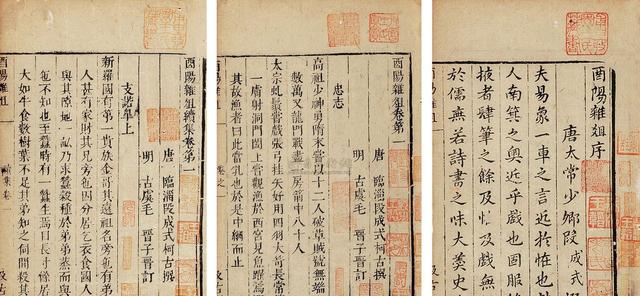 酉陽雜俎序
唐太常少卿段成式
夫易象一車之言近於怪也
人南箕之奧近乎戲也固服
掖者肆筆之餘及怪及戲無
於儒無若詩書之味大羹史
酉陽雜俎卷第一
唐 臨淄段成式柯古撰
明 古虞毛 晉子晉訂
忠志
高祖少神勇隋末嘗以十二人破草賊號無端
數萬又龍門戰盡一房箭中八十人
太宗虬鬚嘗戲張弓挂矢好用四羽大笴長常
一膚射洞門闔上嘗觀漁於西宮見魚躍焉
其故漁者曰此當乳也於是中網而止
酉陽雜俎 卷之一 汲古
酉陽雜俎續集卷第一
唐 臨淄段成式柯古撰
明 古虞毛 晉子晉訂
支諾皋上
新羅國有第一貴族金哥其遠祖名旁㐌有弟
人甚有家財其兄旁㐌因分居乞衣食國人
與其隙地一畝乃求蠶穀種於弟弟蒸而與
㐌不知也至蠶時有一蠶生焉日長寸餘居
大如牛食數樹葉不足其弟知之伺間殺其
酉陽雜俎 續集卷 汲古